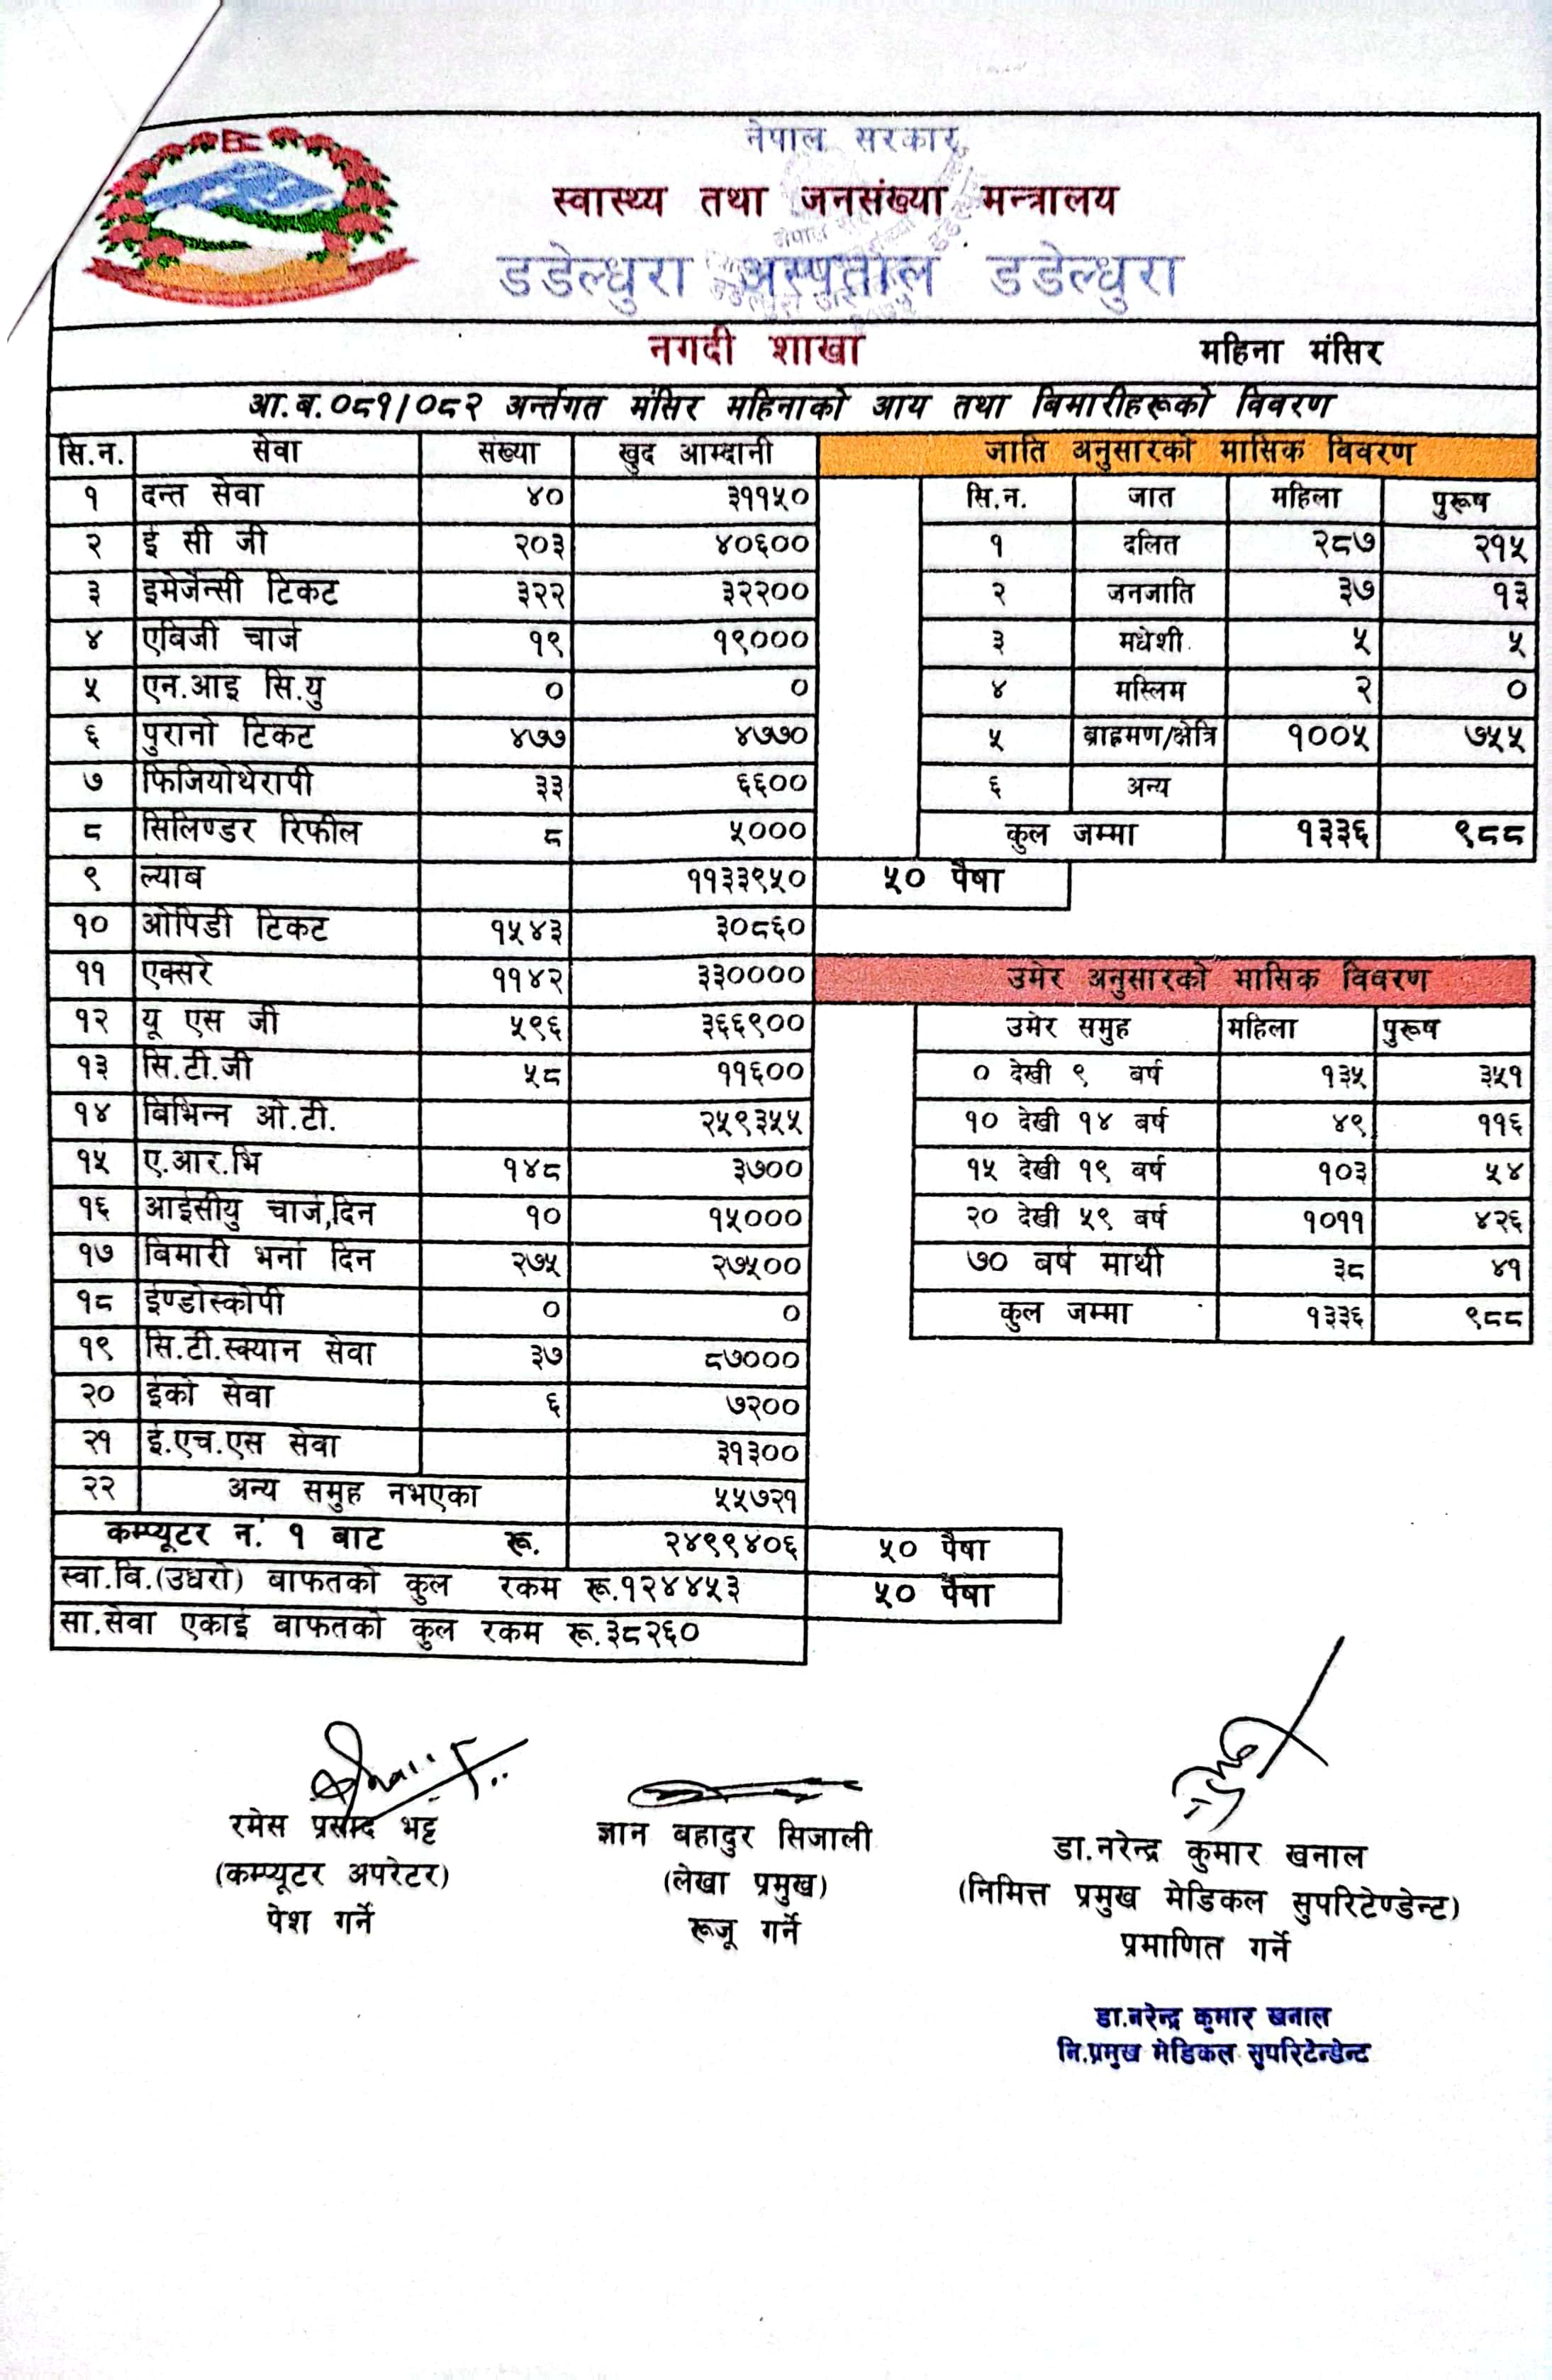 नेपाल सरकार
स्वास्थ्य तथा जनसंख्या मन्त्रालय
डडेल्धुरा अस्पताल डडेल्धुरा
नगदी शाखा महिना मंसिर
आ.ब.०८१/०८२ अर्न्तगत मंसिर महिनाको आय तथा बिमारीहरूको विवरण
सि.न. सेवा संख्या खुद आम्दानी
१ दन्त सेवा ४० ३११५०
२ ई सी जी २०३ ४०६००
३ इमेर्जेन्सी टिकट ३२२ ३२२००
४ एबिजी चार्ज १९ १९०००
५ एन.आइ सि.यु ० ०
६ पुरानो टिकट ४७७ ४७७०
७ फिजियोथेरापी ३३ ६६००
८ सिलिण्डर रिफील ८ ५०००
९ ल्याब ११३३९५० ५० पैषा
१० ओपिडी टिकट १५४३ ३०८६०
११ एक्सरे ११४२ ३३००००
१२ यू एस जी ५९६ ३६६९००
१३ सि.टी.जी ५८ ११६००
१४ बिभिन्न ओ.टी. २५९३५५
१५ ए.आर.भि १४८ ३७००
१६ आईसीयु चार्ज,दिन १० १५०००
१७ बिमारी भर्ना दिन २७५ २७५००
१८ ईण्डोस्कोपी ० ०
१९ सि.टी.स्क्यान सेवा ३७ ८७०००
२० ईको सेवा ६ ७२००
२१ ई.एच.एस सेवा ३१३००
२२ अन्य समुह नभएका ५५७२१
कम्प्यूटर नं. १ बाट रू. २४९९४०६ ५० पैषा
स्वा.बि.(उधरो) बाफतको कुल रकम रू.१२४४५३ ५० पैषा
सा.सेवा एकाई बाफतको कुल रकम रू.३८२६०
जाति अनुसारको मासिक विवरण
सि.न. जात महिला पुरूष
१ दलित २८७ २१५
२ जनजाति ३७ १३
३ मधेशी ५ ५
४ मस्लिम २ ०
५ ब्राहमण/क्षेत्रि १००५ ७५५
६ अन्य
कुल जम्मा १३३६ ९८८
उमेर अनुसारको मासिक विवरण
उमेर समुह महिला पुरूष
० देखी ९ बर्ष १३५ ३५१
१० देखी १४ बर्ष ४९ ११६
१५ देखी १९ बर्ष १०३ ५४
२० देखी ५९ बर्ष १०११ ४२६
७० बर्ष माथी ३८ ४१
कुल जम्मा १३३६ ९८८
रमेस प्रसाद भट्ट
(कम्प्यूटर अपरेटर)
पेश गर्ने
ज्ञान बहादुर सिजाली
(लेखा प्रमुख)
रूजू गर्ने
डा.नरेन्द्र कुमार खनाल
(निमित्त प्रमुख मेडिकल सुपरिटेण्डेन्ट)
प्रमाणित गर्ने
डा.नरेन्द्र कुमार खनाल
नि.प्रमुख मेडिकल सुपरिटेन्डेन्ट